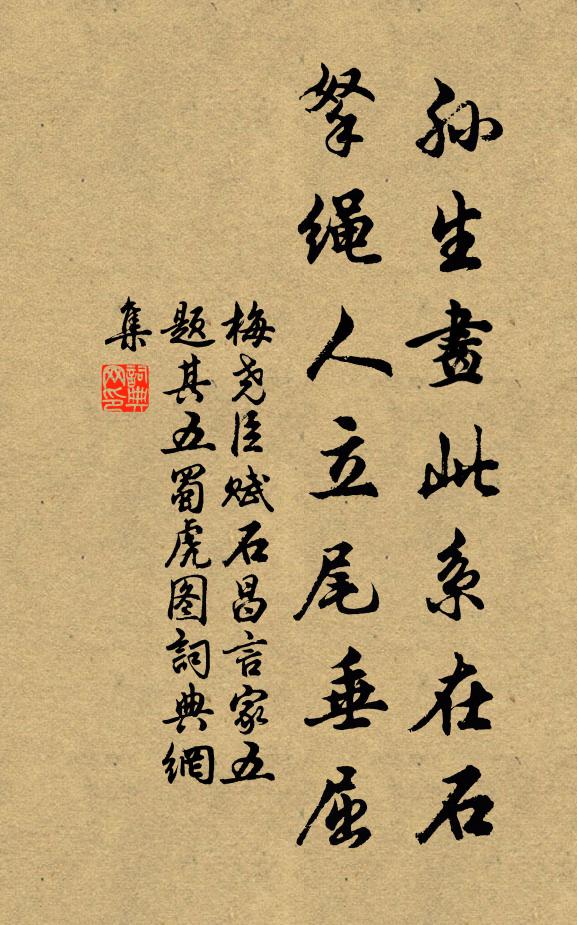 孙生畫此系在石
拏绳人立尾垂屈
梅尧臣赋石昌言家五
题其五蜀虎图詞典網
集
詞典网印